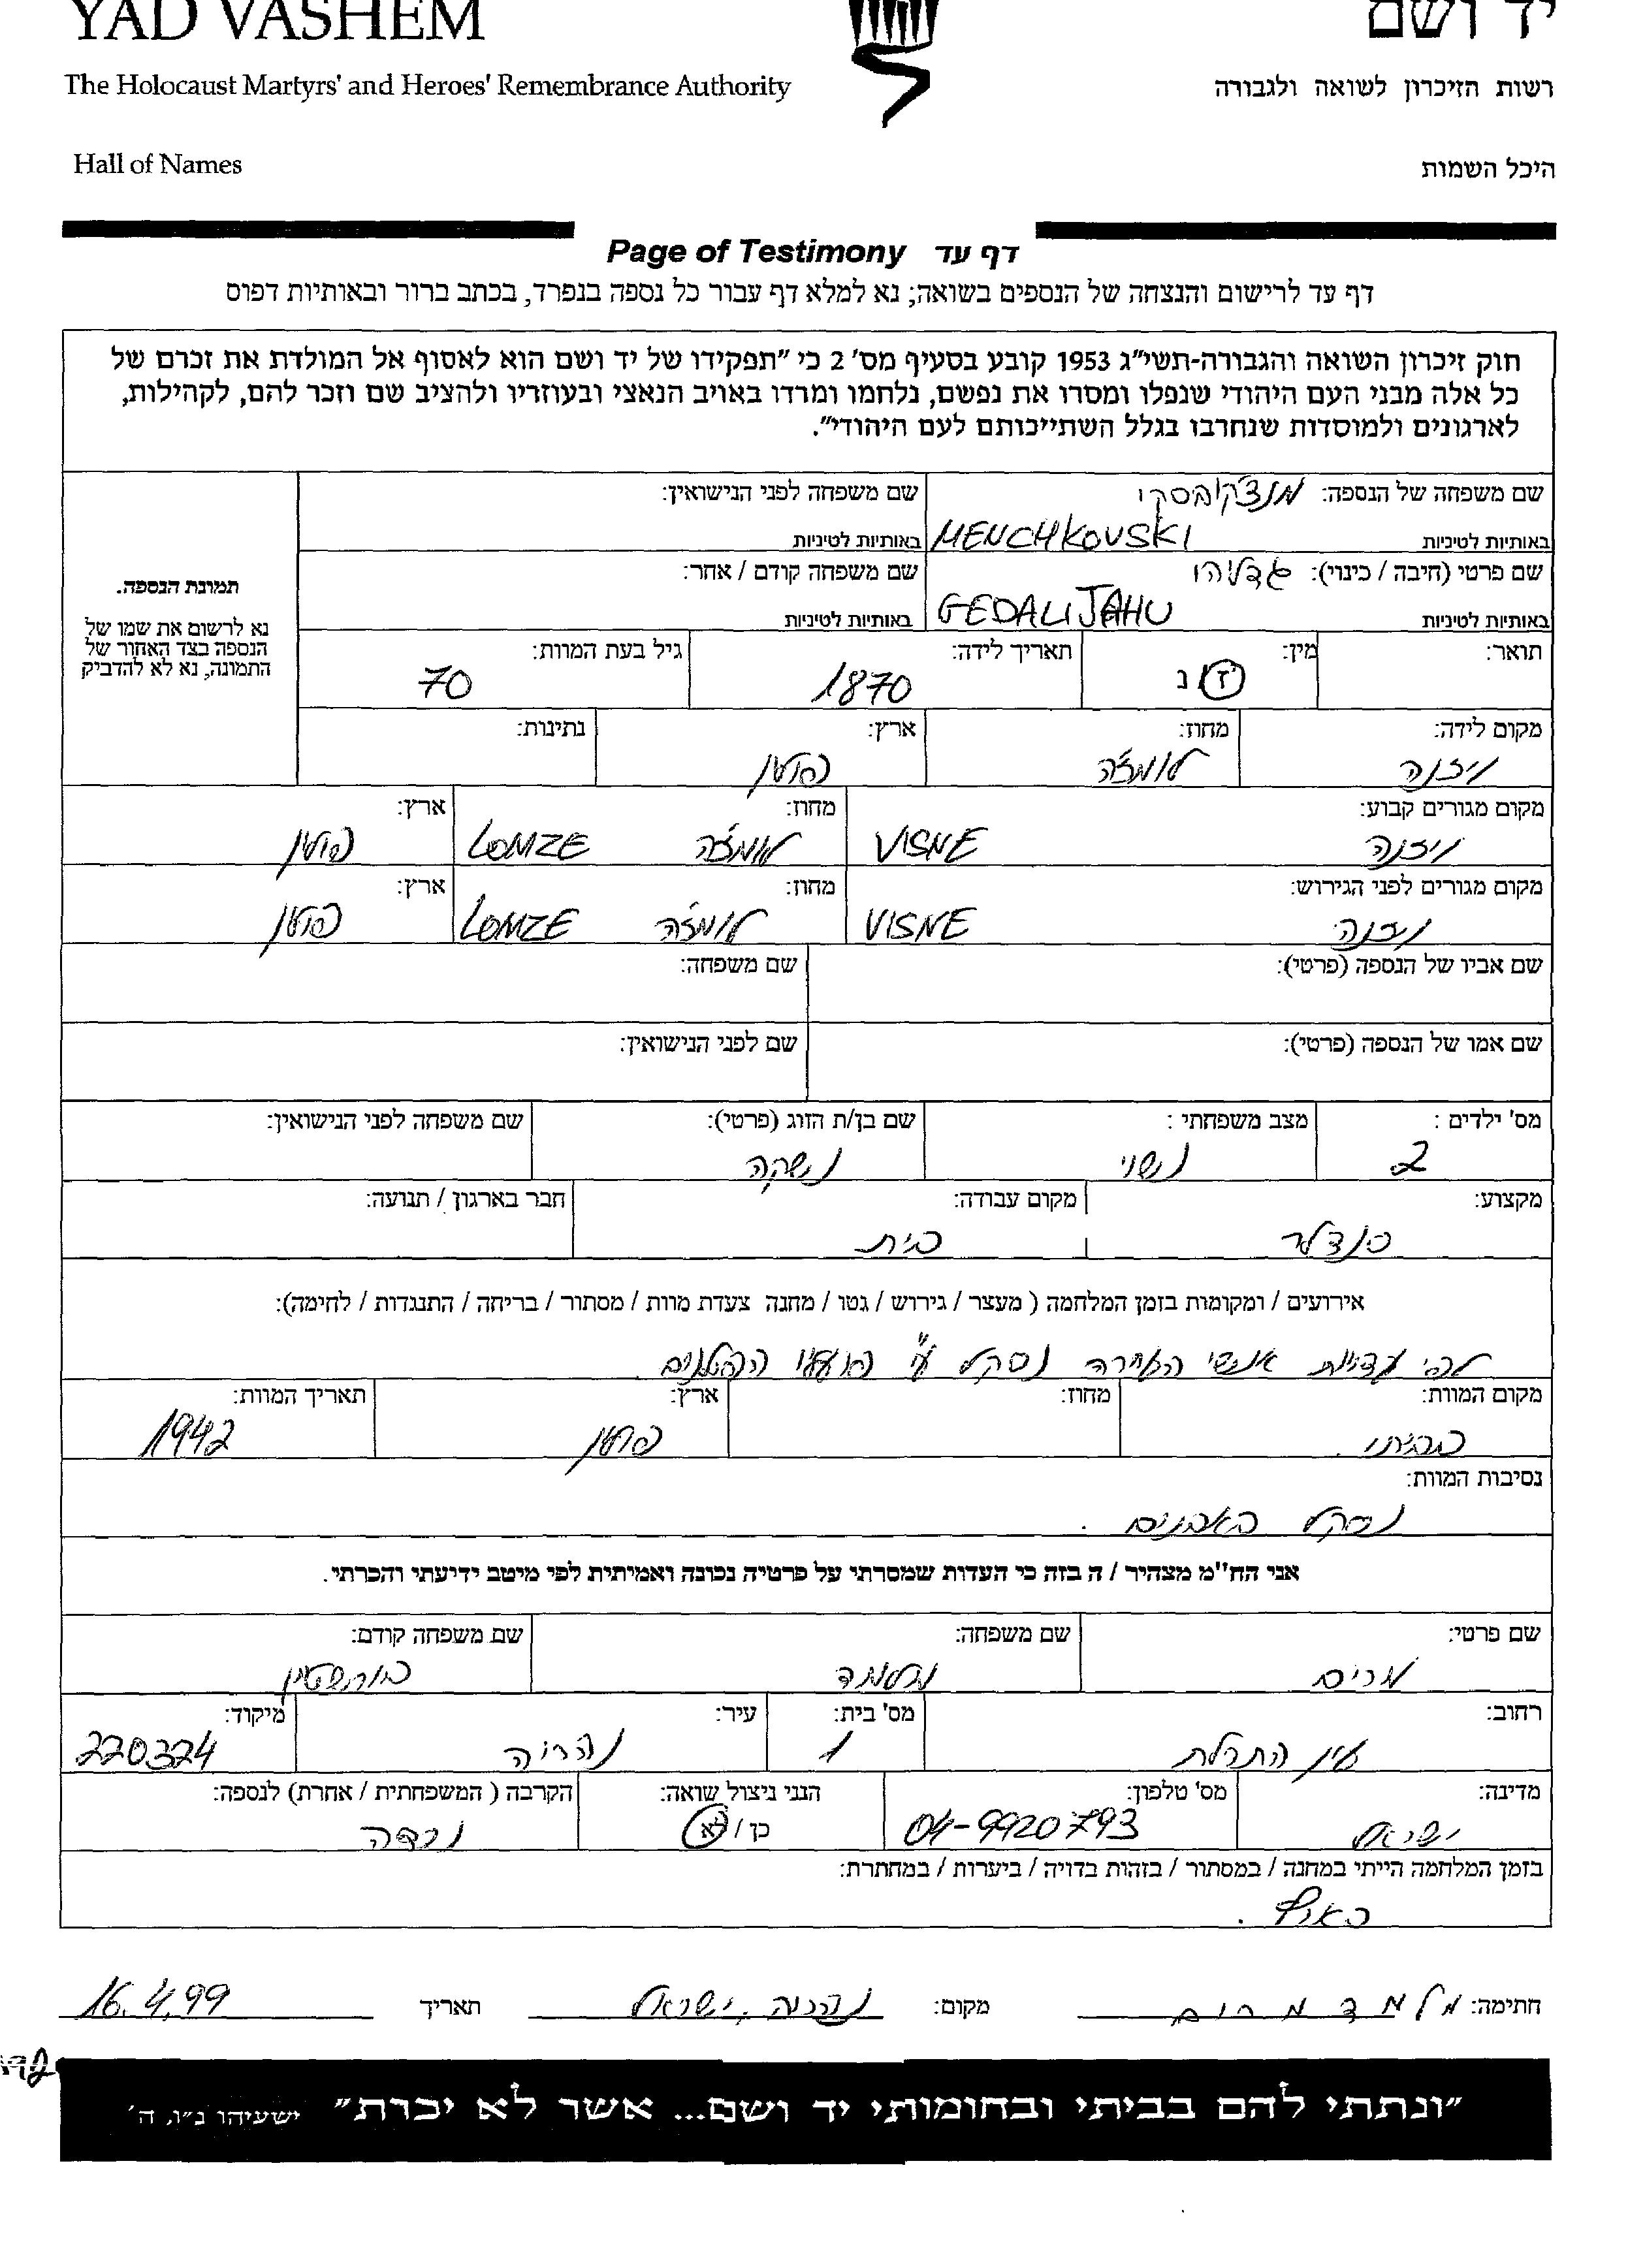 YAD VASHEM יד ושם
The Holocaust Martyrs' and Heroes' Remembrance Authority רשות הזיכרון לשואה ולגבורה
Hall of Names היכל השמות
Page of Testimony דף עד
דף עד לרישום והנצחה של הנספים בשואה; נא למלא דף עבור כל נספה בנפרד, בכתב ברור ובאותיות דפוס
חוק זיכרון השואה והגבורה-תשי"ג 1953 קובע בסעיף מס' 2 כי "תפקידו של יד ושם הוא לאסוף אל המולדת את זכרם של
כל אלה מבני העם היהודי שנפלו ומסרו את נפשם, נלחמו ומרדו באויב הנאצי ובעוזריו ולהציב שם וזכר להם, לקהילות,
לארגונים ולמוסדות שנחרבו בגלל השתייכותם לעם היהודי".
שם משפחה של הנספה: מנצ'קובסקי שם משפחה לפני הנישואין:
באותיות לטיניות MENCHKOVSKI באותיות לטיניות
שם פרטי (חיבה / כינוי): גדליהו שם משפחה קודם / אחר:
באותיות לטיניות GEDALIJAHU באותיות לטיניות
תמונת הנספה.
נא לרשום את שמו של
הנספה בצד האחור של
התמונה, נא לא להדביק
תואר: מין: ז / נ תאריך לידה: 1870 גיל בעת המוות: 70
מקום לידה: מחוז: ארץ: נתינות:
ויזנה לומז'ה פולין
מקום מגורים קבוע: מחוז: ארץ:
ויזנה VISNE לומז'ה LOMZE פולין
מקום מגורים לפני הגירוש: מחוז: ארץ:
ויזנה VISNE לומז'ה LOMZE פולין
שם אביו של הנספה (פרטי): שם משפחה:
שם אמו של הנספה (פרטי): שם לפני הנישואין:
מס' ילדים : מצב משפחתי : שם בן/ת הזוג (פרטי): שם משפחה לפני הנישואין:
2 נשוי נשקה
מקצוע: מקום עבודה: חבר בארגון / תנועה:
סנדלר בית
אירועים / ומקומות בזמן המלחמה ( מעצר / גירוש / גטו / מחנה צעדת מוות / מסתור / בריחה / התנגדות / לחימה):
לפי עדויות אנשי העיירה נסקל ע"י
מקום המוות: מחוז: ארץ: תאריך המוות:
בביתו. פולין 1942
נסיבות המוות:
נסקל באבנים .
אני הח"מ מצהיר / ה בזה כי העדות שמסרתי על פרטיה נכונה ואמיתית לפי מיטב ידיעתי והכרתי.
שם פרטי: שם משפחה: שם משפחה קודם:
מרים מלמד בורשטיין
רחוב: מס' בית: עיר: מיקוד:
עין התכלת 1 נהריה 220324
מדינה: מס' טלפון: הנני ניצול שואה: הקרבה ( המשפחתית / אחרת) לנספה:
ישראל 04-9920793 כן / לא נכדה
בזמן המלחמה הייתי במחנה / במסתור / בזהות בדויה / ביערות / במחתרת:
בארץ .
חתימה: מלמד מרים מקום: נהריה, ישראל תאריך 16.4.99
"ונתתי להם בביתי ובחומותי יד ושם... אשר לא יכרת" ישעיהו נ"ו, ה'